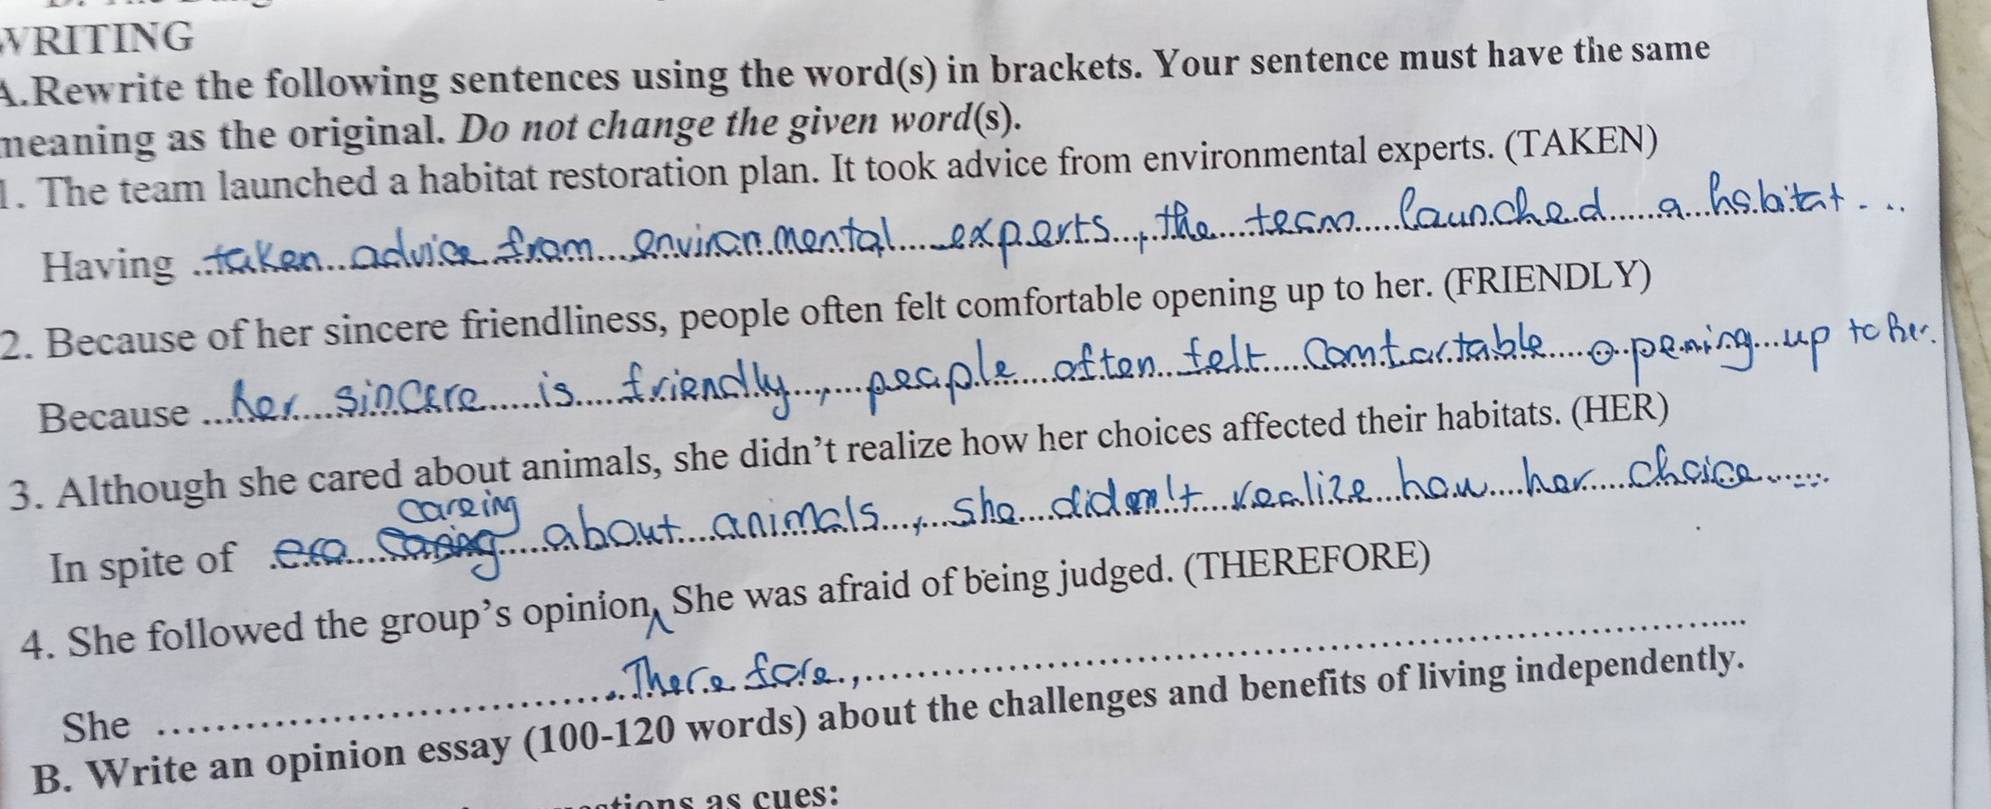 WRITING
A.Rewrite the following sentences using the word(s) in brackets. Your sentence must have the same
meaning as the original. Do not change the given word(s).
1. The team launched a habitat restoration plan. It took advice from environmental experts. (TAKEN)
Having taken advice from environmental experts, the team launched a habitat...
2. Because of her sincere friendliness, people often felt comfortable opening up to her. (FRIENDLY)
Because her sincere is friendly, people often felt comfortable opening up to her.
3. Although she cared about animals, she didn't realize how her choices affected their habitats. (HER)
careing
In spite of about animals, she didn't realize how her choice......
4. She followed the group's opinion, She was afraid of being judged. (THEREFORE)
She ........ Therefore, ........
B. Write an opinion essay (100-120 words) about the challenges and benefits of living independently.
as cues: